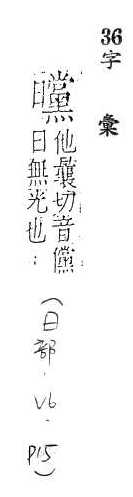 36字 彙
曭 他曩切音儻
日無光也:
(日部. V6. P15)